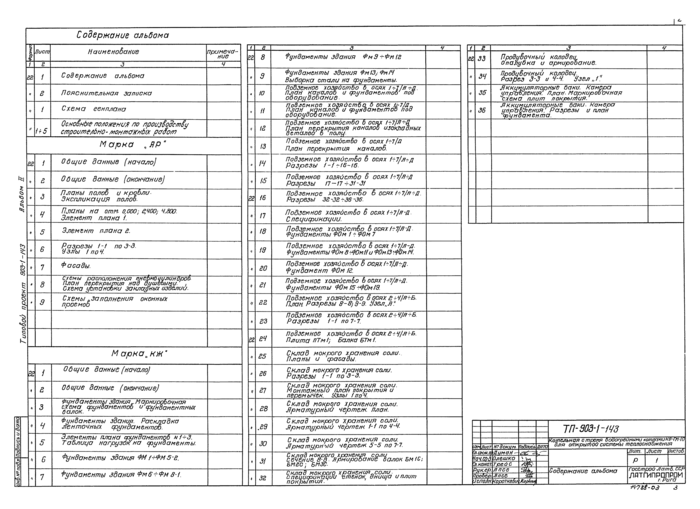 Содержание альбома
Лист
Наименование
примеча-
ние
1 2 3 4
22 1 Содержание альбома
" 2 Пояснительная записка
" 1 Схема генплана
Основные положения по производству
" 1÷5 строительно-монтажных работ
Марка „АР"
22 1 Общие данные (начало)
" 2 Общие данные (окончание)
" 3 Планы полов и кровли.
Экспликация полов.
" 4 Планы на отм. 0,000; 2,400; 4,800.
Элемент плана 1.
" 5 Элемент плана 2.
" 6 Разрезы 1-1 по 3-3.
Узлы 1 по 4.
" 7 Фасады.
" 8 Схемы расположения
План перекрытия над душевыми.
Схема установки закладных изделий.
" 9 Схемы заполнения оконных
проемов
Марка „КЖ"
22 1 Общие данные (начало)
" 2 Общие данные (окончание)
" 3 Фундаменты здания. Маркировочная
схема фундаментов и фундаментных
балок.
" 4 Фундаменты здания. Раскладка
ленточных фундаментов
" 5 Элементы плана фундаментов
Таблица нагрузок на фундаменты.
" 6 Фундаменты здания ФМ1÷ФМ5-2.
" 7 Фундаменты здания ФМ6÷ФМ8-1.
1 2 3 4
22 8 Фундаменты здания ФМ9÷ФМ12
" 9 Фундаменты здания ФМ13, ФМ14
Выборка стали на фундаменты.
" 10 Подземное хозяйство в осях 1÷7/А÷Д
План каналов и фундаментов под
оборудование.
" 11 Подземное хозяйство в осях
План каналов и фундаментов под
оборудование.
" 12 Подземное хозяйство в осях 1÷7/А÷Д
План перекрытия каналов закладных
деталей в полу
" 13 Подземное хозяйство в осях 1÷7/Д
План перекрытия каналов.
" 14 Подземное хозяйство в осях 1÷7/А÷Д
Разрезы 1-1÷16-16.
" 15 Подземное хозяйство в осях 1÷7/А÷Д
Разрезы 17-17÷31-31
22 16 Подземное хозяйство в осях 1÷7/А÷Д
Разрезы 32-32÷36-36.
" 17 Подземное хозяйство в осях 1÷7/А÷Д
Спецификации.
" 18 Подземное хозяйство в осях 1÷7/А÷Д
Фундаменты ФОМ1÷ФОМ7
" 19 Подземное хозяйство в осях 1÷7/А÷Д
Фундаменты ФОМ8÷ФОМ11 и ФОМ13÷ФОМ14.
" 20 Подземное хозяйство в осях 1÷7/А÷Д
Фундамент ФОМ12.
" 21 Подземное хозяйство в осях 1÷7/А÷Д
Фундаменты ФОМ15÷ФОМ19.
" 22 Подземное хозяйство в осях 2÷4/А÷Б.
План. Разрезы 8-8; 9-9. Узел „А"
" 23 Подземное хозяйство в осях 2÷4/А÷Б.
Разрезы 1-1 по 7-7.
22 24 Подземное хозяйство в осях 2÷4/А÷Б.
Плита ПТМ1; Балка БТМ1.
" 25 Склад мокрого хранения соли.
Планы и фасады.
" 26 Склад мокрого хранения соли.
Разрезы 1-1 по 3-3.
" 27 Склад мокрого хранения соли.
Монтажный план покрытия и
перемычек. Узлы 1 по 4.
" 28 Склад мокрого хранения соли.
Арматурный чертеж. План.
" 29 Склад мокрого хранения соли.
Арматурный чертеж 1-1 по 4-4.
" 30 Склад мокрого хранения соли.
Арматурный чертеж 5-5 по 7-7.
" 31 Склад мокрого хранения соли
Сечение 8-8. Армирование балок БМ1б;
" 32 Склад мокрого хранения соли.
Спецификации стенок, днища и плит
покрытия.
1 2 3 4
22 33 Продувочный колодец.
Опалубка и армирование.
" 34 Продувочный колодец.
Разрез 3-3 и 4-4. Узел „1".
" 35 Аккумуляторные баки. Камера
управления. План. Маркировочная
схема плит покрытия.
" 36 Аккумуляторные баки. Камера
управления. Разрезы и план
фундамента.
Типовой проект 903-1-143 Альбом II
ТП-903-1-143
для открытой системы теплоснабжения
Лит. Лист Листов
Р 1
Содержание альбома
Госстрой Латв. ССР
ЛАТГИПРОПРОМ
г. Рига
14788-03 3